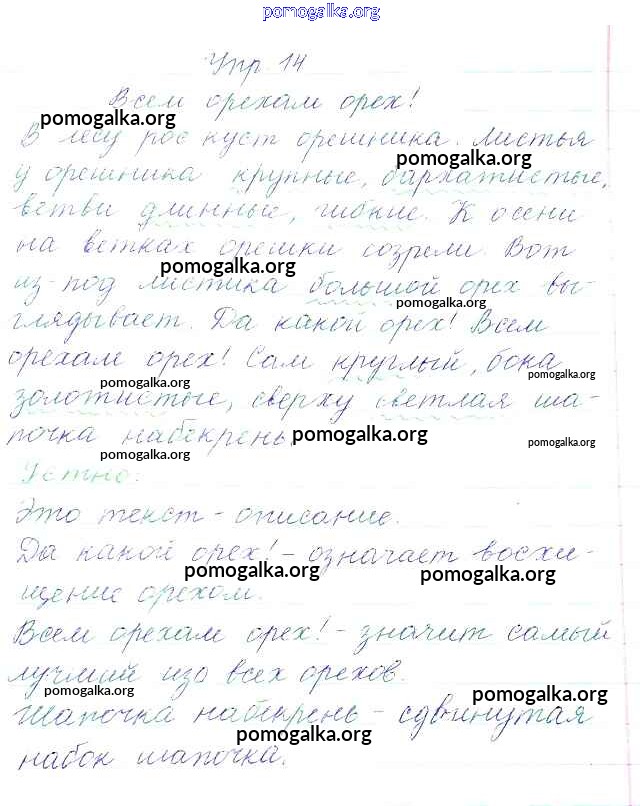 pomogalka.org
Упр. 14
Всем орехам орех!
pomogalka.org
В лесу рос куст орешника. Листья
pomogalka.org
у орешника крупные, бархатистые,
ветви длинные, гибкие. К осени
на ветках орешки созрели. Вот
pomogalka.org
из-под листика большой орех вы-
pomogalka.org
глядывает. Да какой орех! Всем
орехам орех! Сам круглый, бока
pomogalka.org pomogalka.org
золотистые, сверху светлая ша-
почка набекрень.
pomogalka.org pomogalka.org
pomogalka.org
Устно:
Это текст - описание.
Да какой орех! - означает восхи-
pomogalka.org pomogalka.org
щение орехом.
Всем орехам орех! - значит самый
лучший изо всех орехов.
pomogalka.org pomogalka.org
Шапочка набекрень - сдвинутая
pomogalka.org
набок шапочка.